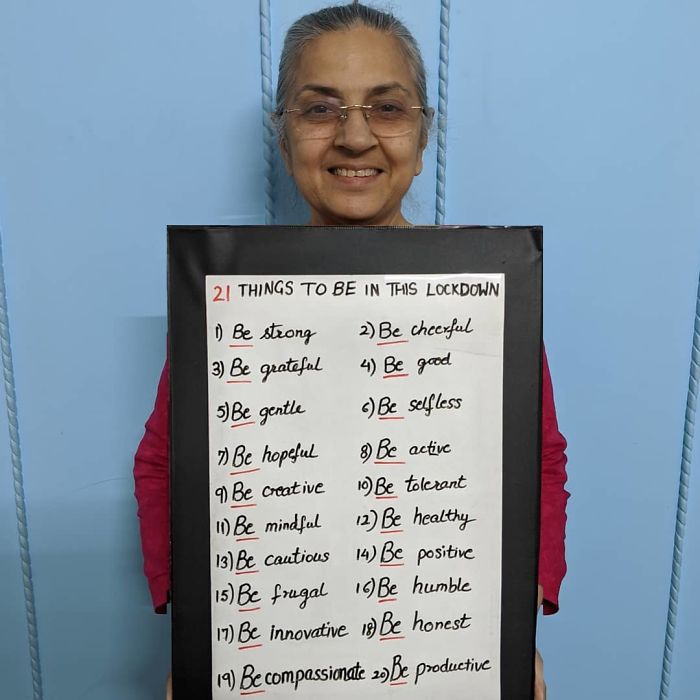 21 THINGS TO BE IN THIS LOCKDOWN
1) Be strong 2) Be cheerful
3) Be grateful 4) Be good
5) Be gentle 6) Be selfless
7) Be hopeful 8) Be active
9) Be creative 10) Be tolerant
11) Be mindful 12) Be healthy
13) Be cautious 14) Be positive
15) Be frugal 16) Be humble
17) Be innovative 18) Be honest
19) Be compassionate 20) Be productive